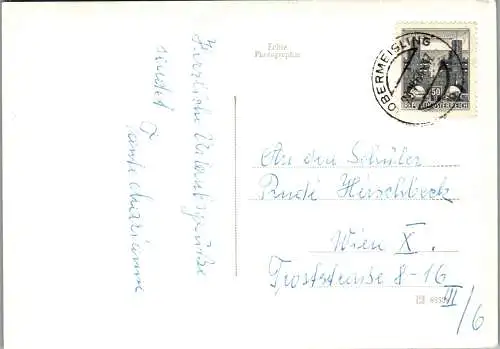 Herzliche Urlaubsgrüße
sendet Tante Marianne
Echte
Photographie
OBERMEISLING
50
REPUBLIK ÖSTERREICH
An den Schüler
Rudi Hirschbeck
Wien X.
Troststrasse 8-16
III/6